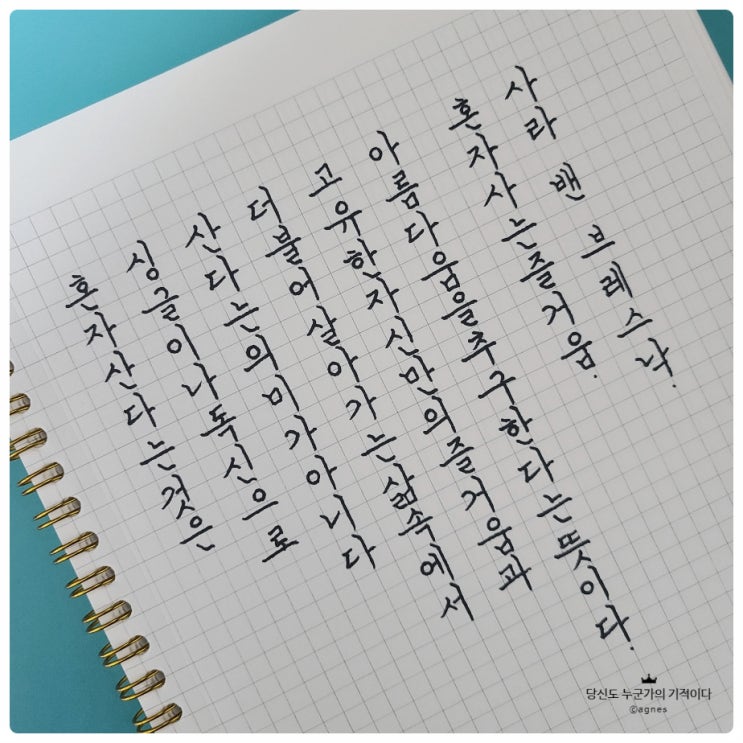 혼자산다는것은
싱글이나독신으로
산다는의미가아니다
더불어살아가는삶속에서
고유한자신만의즐거움과
아름다움을추구한다는뜻이다.
혼자사는즐거움.
사라 밴 브레스낙.
당신도 누군가의 기적이다
©agnes